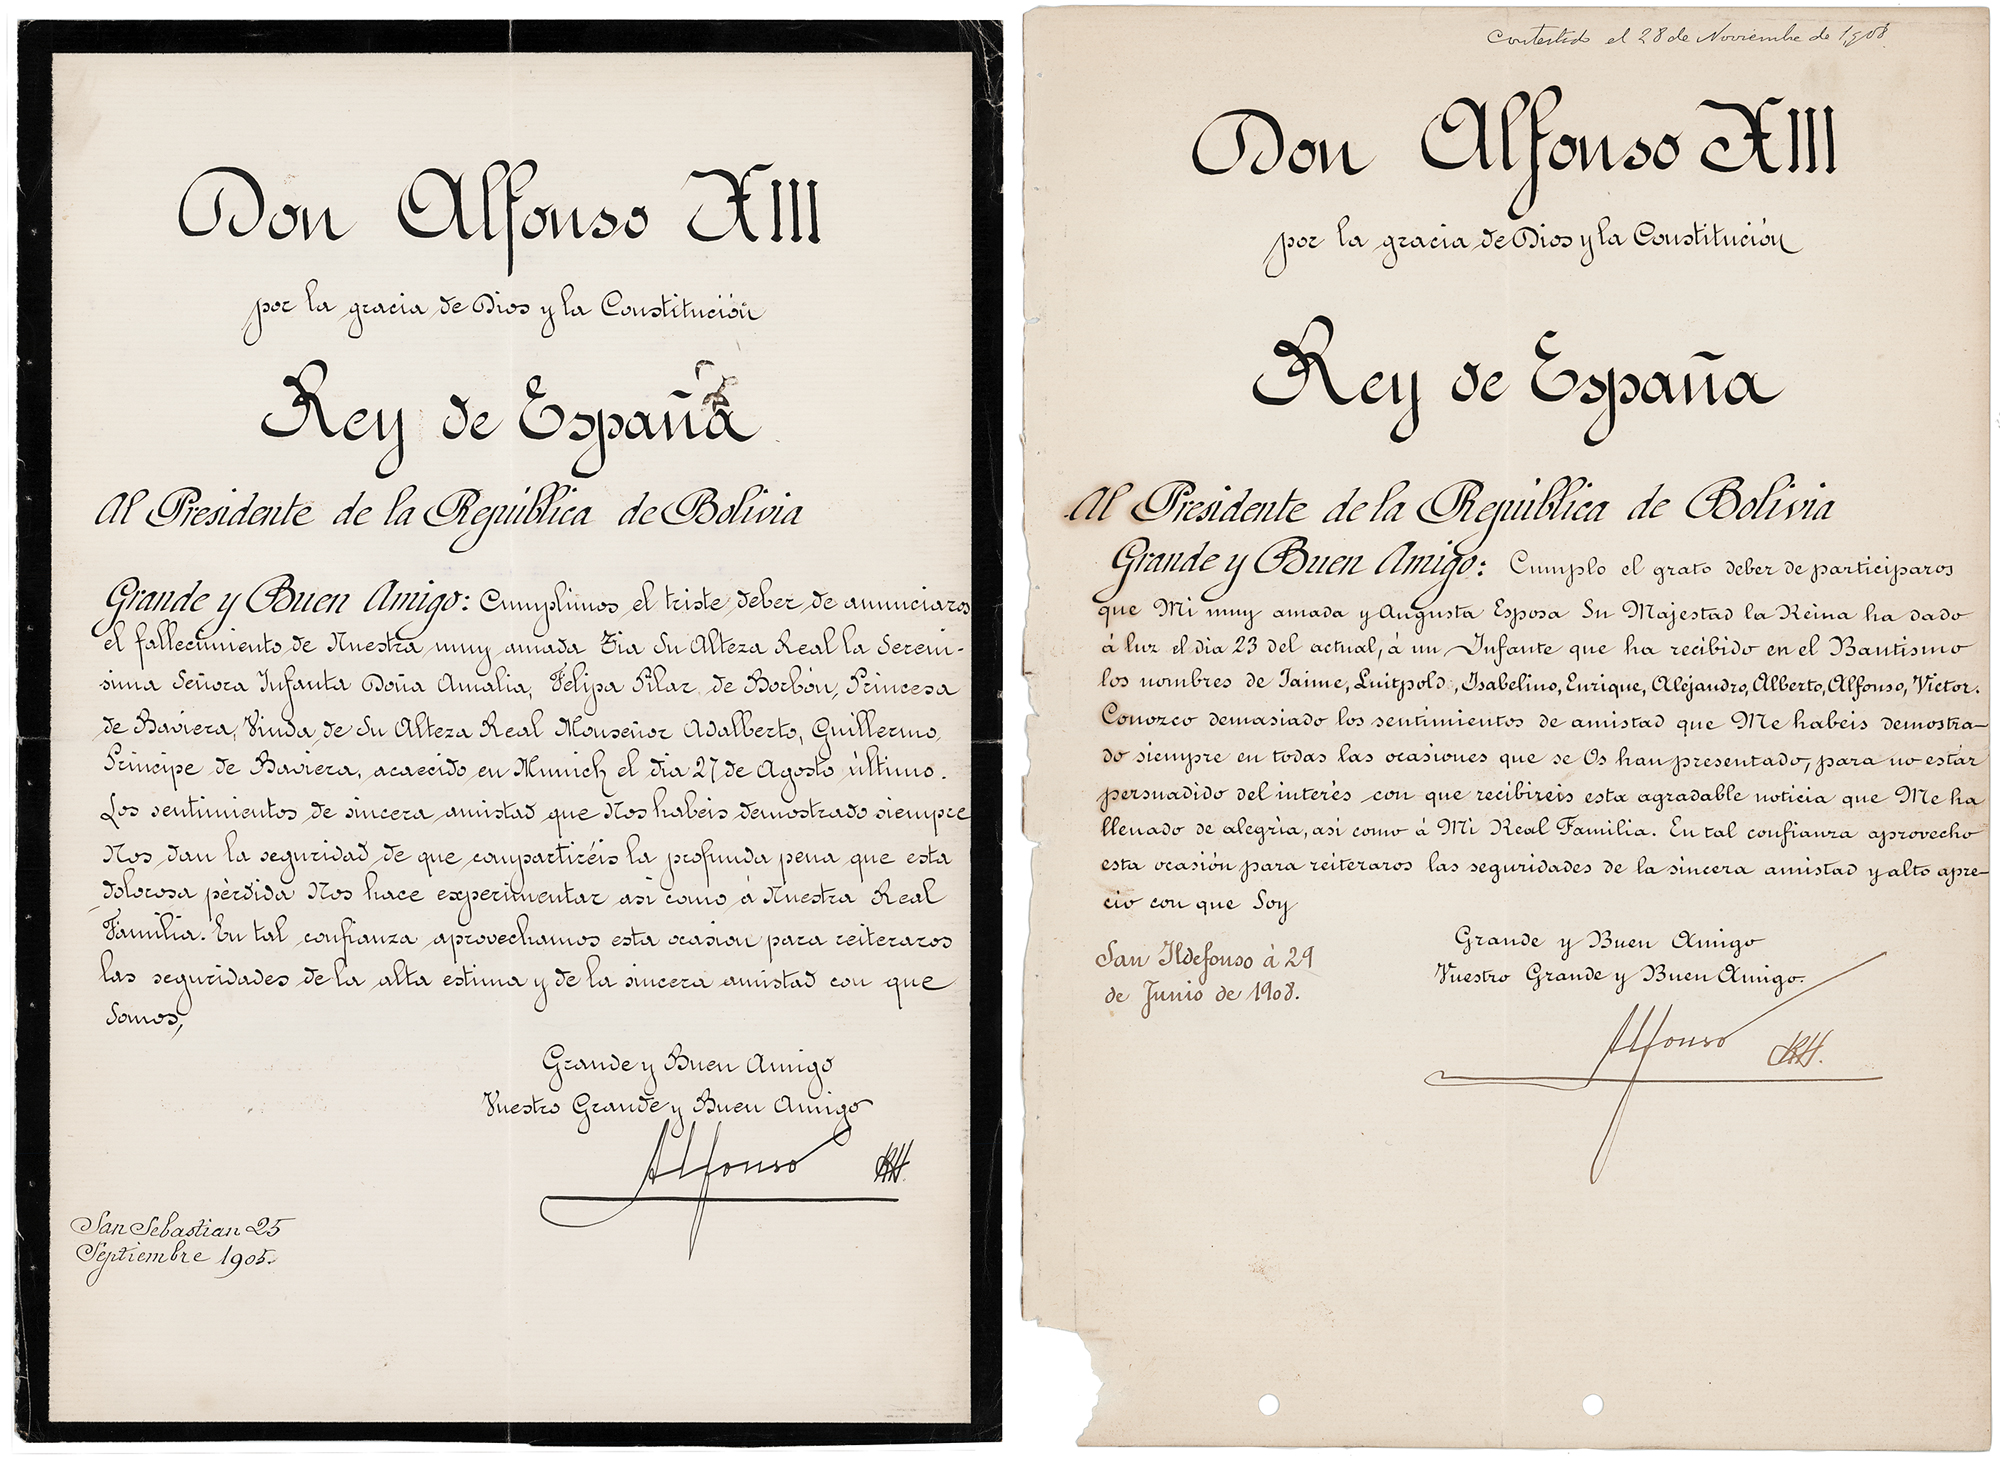 Don Alfonso XIII
por la gracia de Dios y la Constitución
Rey de España
Al Presidente de la República de Bolivia
Grande y Buen Amigo: Cumplimos el triste deber de anunciaros
el fallecimiento de Nuestra muy amada Tia Su Alteza Real la Sereni-
sima Señora Infanta Doña Amalia, Felipa Pilar de Borbón, Princesa
de Baviera, Viuda de Su Alteza Real Monseñor Adalberto, Guillermo,
Principe de Baviera, acaecido en Munich el dia 27 de Agosto último.
Los sentimientos de sincera amistad que Nos habeis demostrado siempre
Nos dan la seguridad de que compartiréis la profunda pena que esta
dolorosa pérdida Nos hace experimentar asi como á Nuestra Real
Familia. En tal confianza aprovechamos esta ocasion para reiteraros
las seguridades de la alta estima y de la sincera amistad con que
Somos,
Grande y Buen Amigo
Vuestro Grande y Buen Amigo
Alfonso RH.
San Sebastian 25
Septiembre 1905.
Contestado el 28 de Noviembre de 1908.
Don Alfonso XIII
por la gracia de Dios y la Constitución
Rey de España
Al Presidente de la República de Bolivia
Grande y Buen Amigo: Cumplo el grato deber de participaros
que Mi muy amada y Augusta Esposa Su Majestad la Reina ha dado
á luz el dia 23 del actual, á un Infante que ha recibido en el Bautismo
los nombres de Jaime, Luitpold, Isabelino, Enrique, Alejandro, Alberto, Alfonso, Victor.
Conozco demasiado los sentimientos de amistad que Me habeis demostra-
do siempre en todas las ocasiones que se Os han presentado, para no estar
persuadido del interés con que recibireis esta agradable noticia que Me ha
llenado de alegria, asi como á Mi Real Familia. En tal confianza aprovecho
esta ocasión para reiteraros las seguridades de la sincera amistad y alto apre-
cio con que Soy
Grande y Buen Amigo
Vuestro Grande y Buen Amigo.
San Ildefonso á 29
de Junio de 1908.
Alfonso RH.